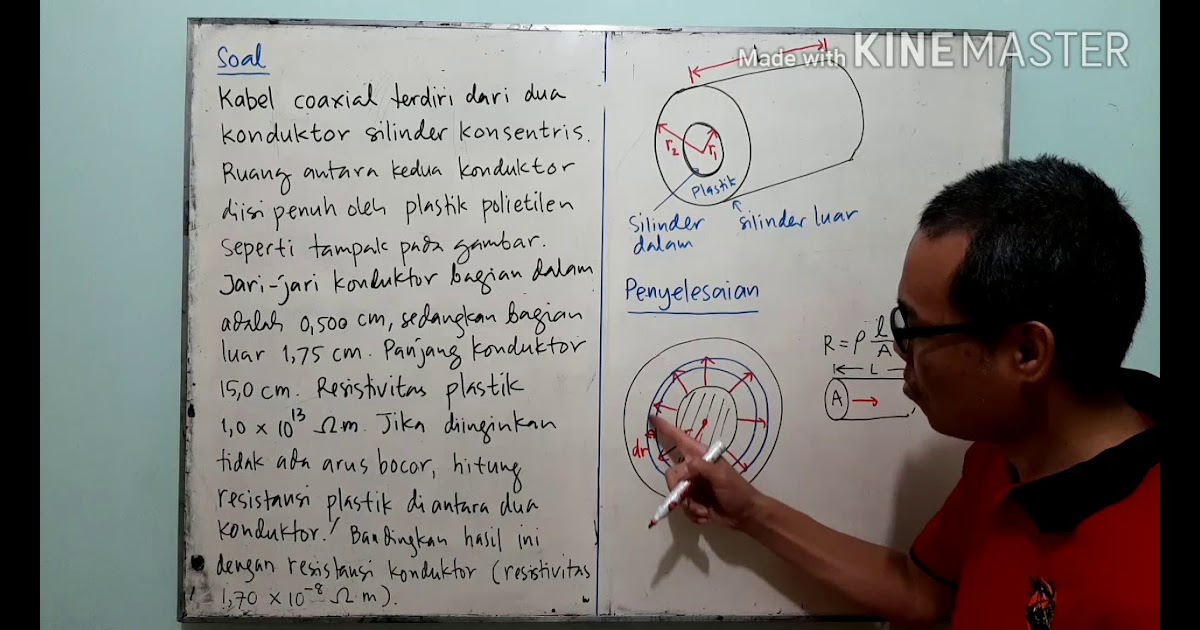 Soal
Kabel coaxial terdiri dari dua
konduktor silinder konsentris.
Ruang antara kedua konduktor
diisi penuh oleh plastik polietilen
seperti tampak pada gambar.
Jari-jari konduktor bagian dalam
adalah 0,500 cm, sedangkan bagian
luar 1,75 cm. Panjang konduktor
15,0 cm. Resistivitas plastik
1,0 × 10¹³ Ωm. Jika diinginkan
tidak ada arus bocor, hitung
resistansi plastik di antara dua
konduktor! Bandingkan hasil ini
dengan resistansi konduktor (resistivitas
1,70 × 10⁻⁸ Ω m).
Made with KINEMASTER
r₂
r₁
plastik
silinder
dalam
silinder luar
Penyelesaian
dr
R = ρ l/A
L
A